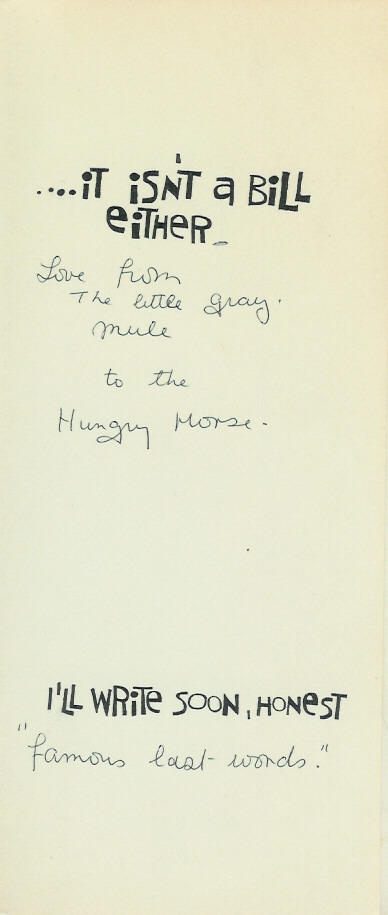 ....it isn't a Bill
either
Love from
The little gray.
mule
to the
Hungry Horse.
I'll write soon, honest
"famous last words."